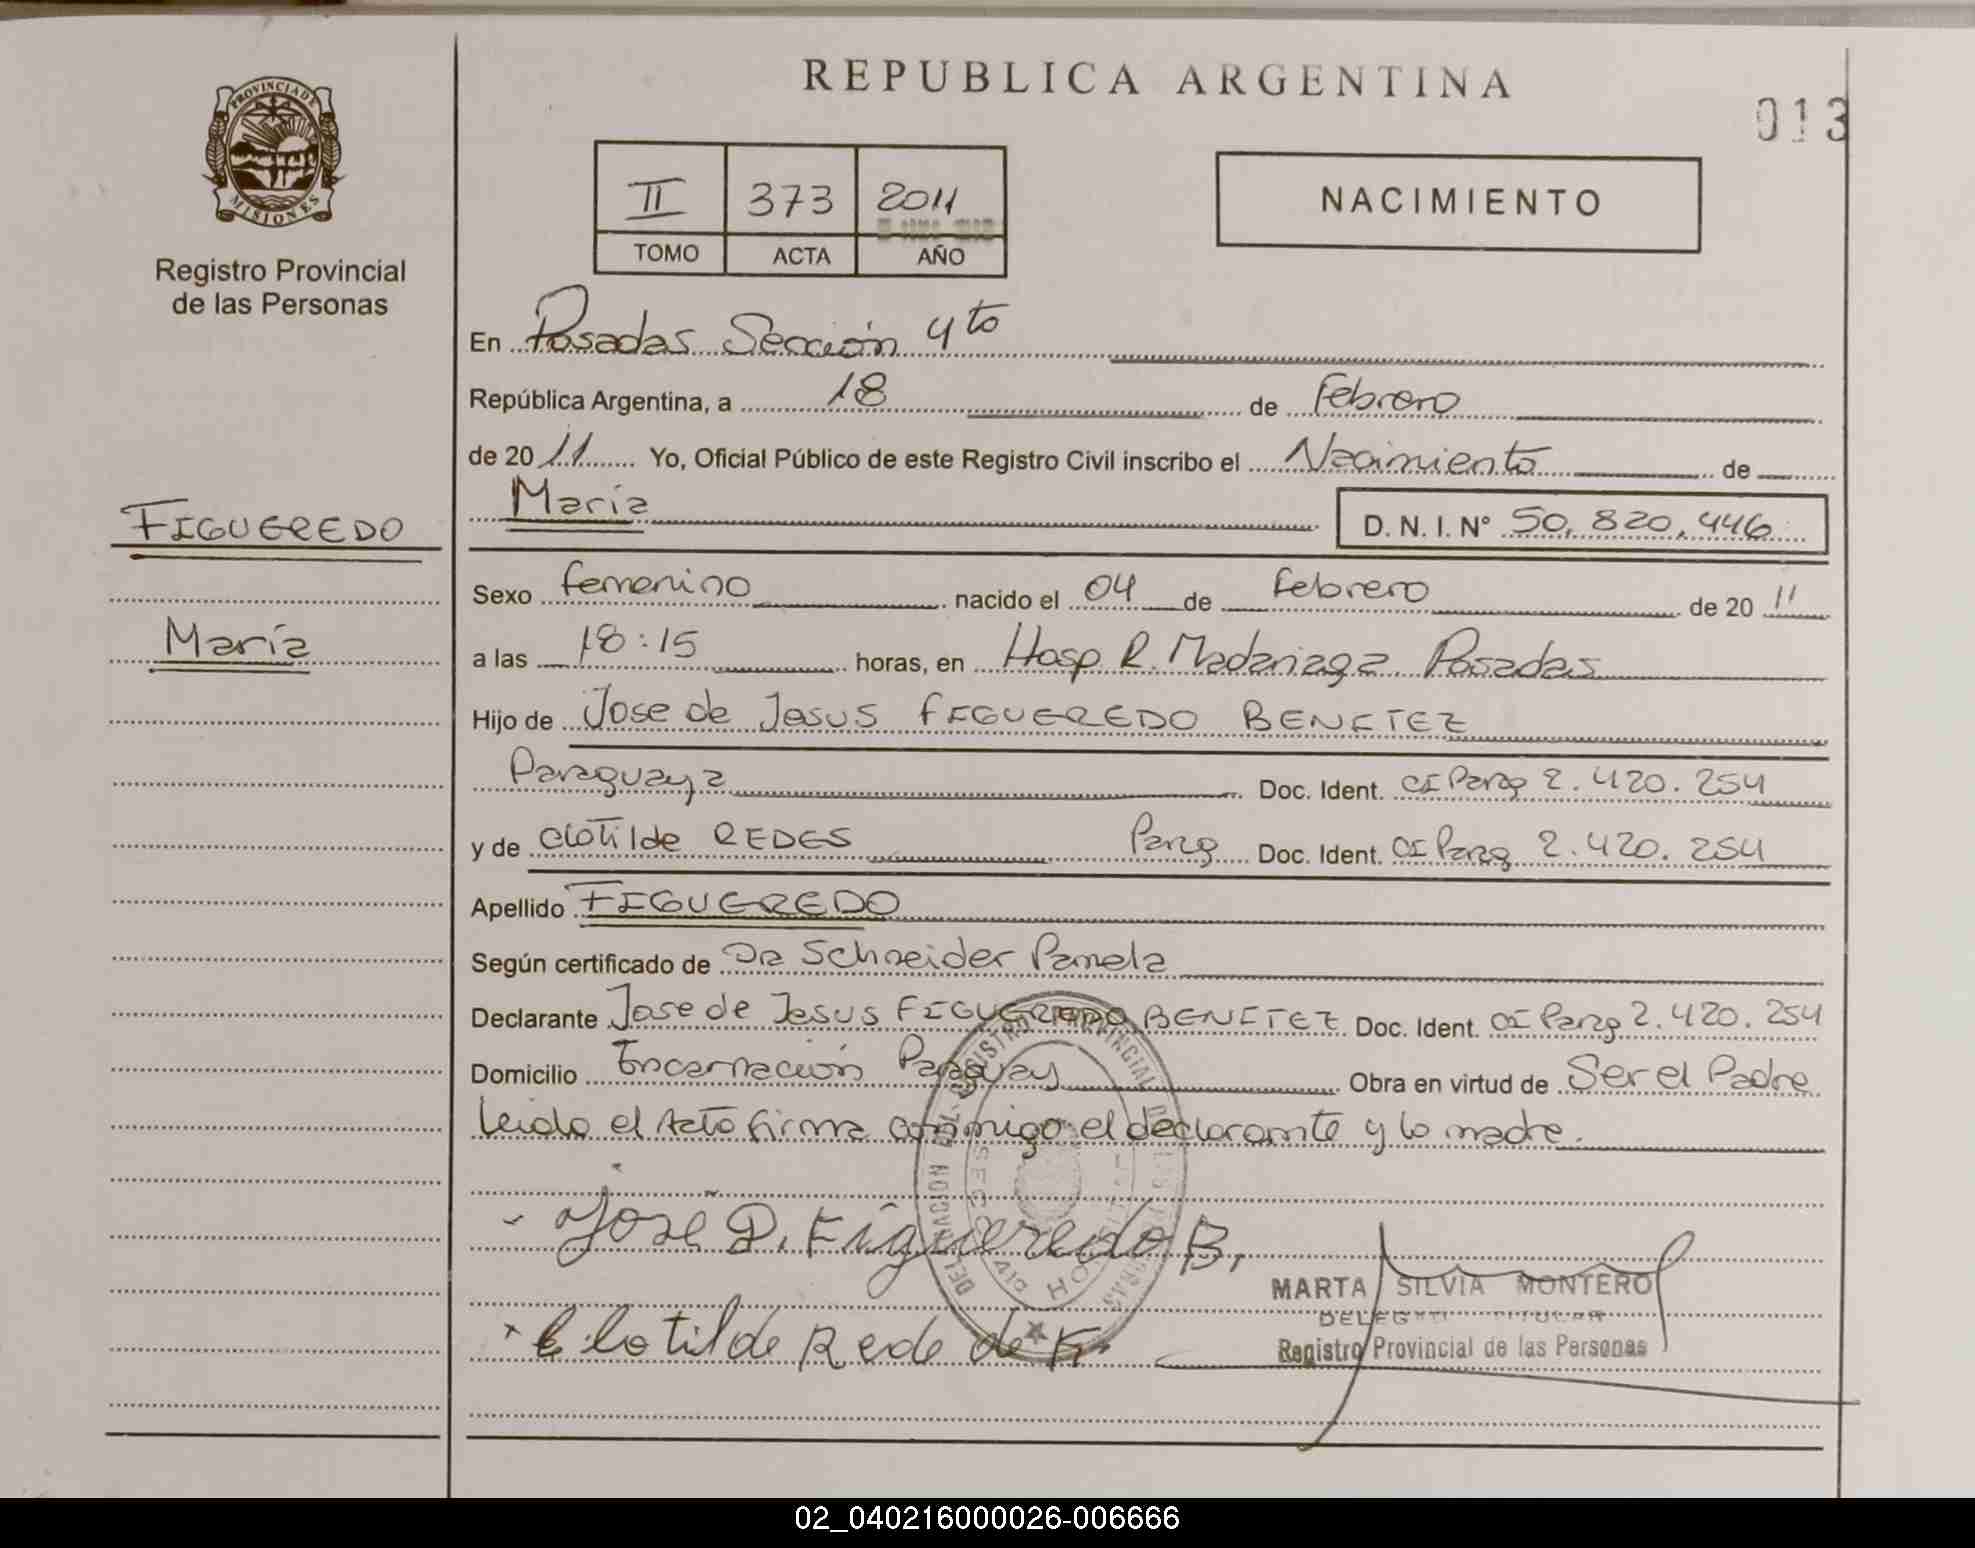 REPUBLICA ARGENTINA
013
PROVINCIA DE
MISIONES
Registro Provincial
de las Personas
II 373 2011
TOMO ACTA AÑO
NACIMIENTO
En Posadas Sección 4to
República Argentina, a 18 de Febrero
de 2011 Yo, Oficial Público de este Registro Civil inscribo el Nacimiento de
María D. N. I. N° 50,820,446
FIGUEREDO
María
Sexo femenino nacido el 04 de Febrero de 20 11
a las 18:15 horas, en Hosp R. Madariaga Posadas
Hijo de Jose de Jesus FIGUEREDO BENITEZ
Paraguaya Doc. Ident. CI Parag 2.420.254
y de Clotilde REDES Parag Doc. Ident. CI Parag 2.420.254
Apellido FIGUEREDO
Según certificado de Dra Schneider Pamela
Declarante Jose de Jesus FIGUEREDO BENITEZ Doc. Ident. CI Parag 2.420.254
Domicilio Encarnación Paraguay Obra en virtud de Ser el Padre
Leida el Acto firma conmigo el declarante y la madre.
José D. Figueredo B.
Clotilde Rede de F.
MARTA SILVIA MONTERO
DELEGADA TITULAR
Registro Provincial de las Personas
02_040216000026-006666